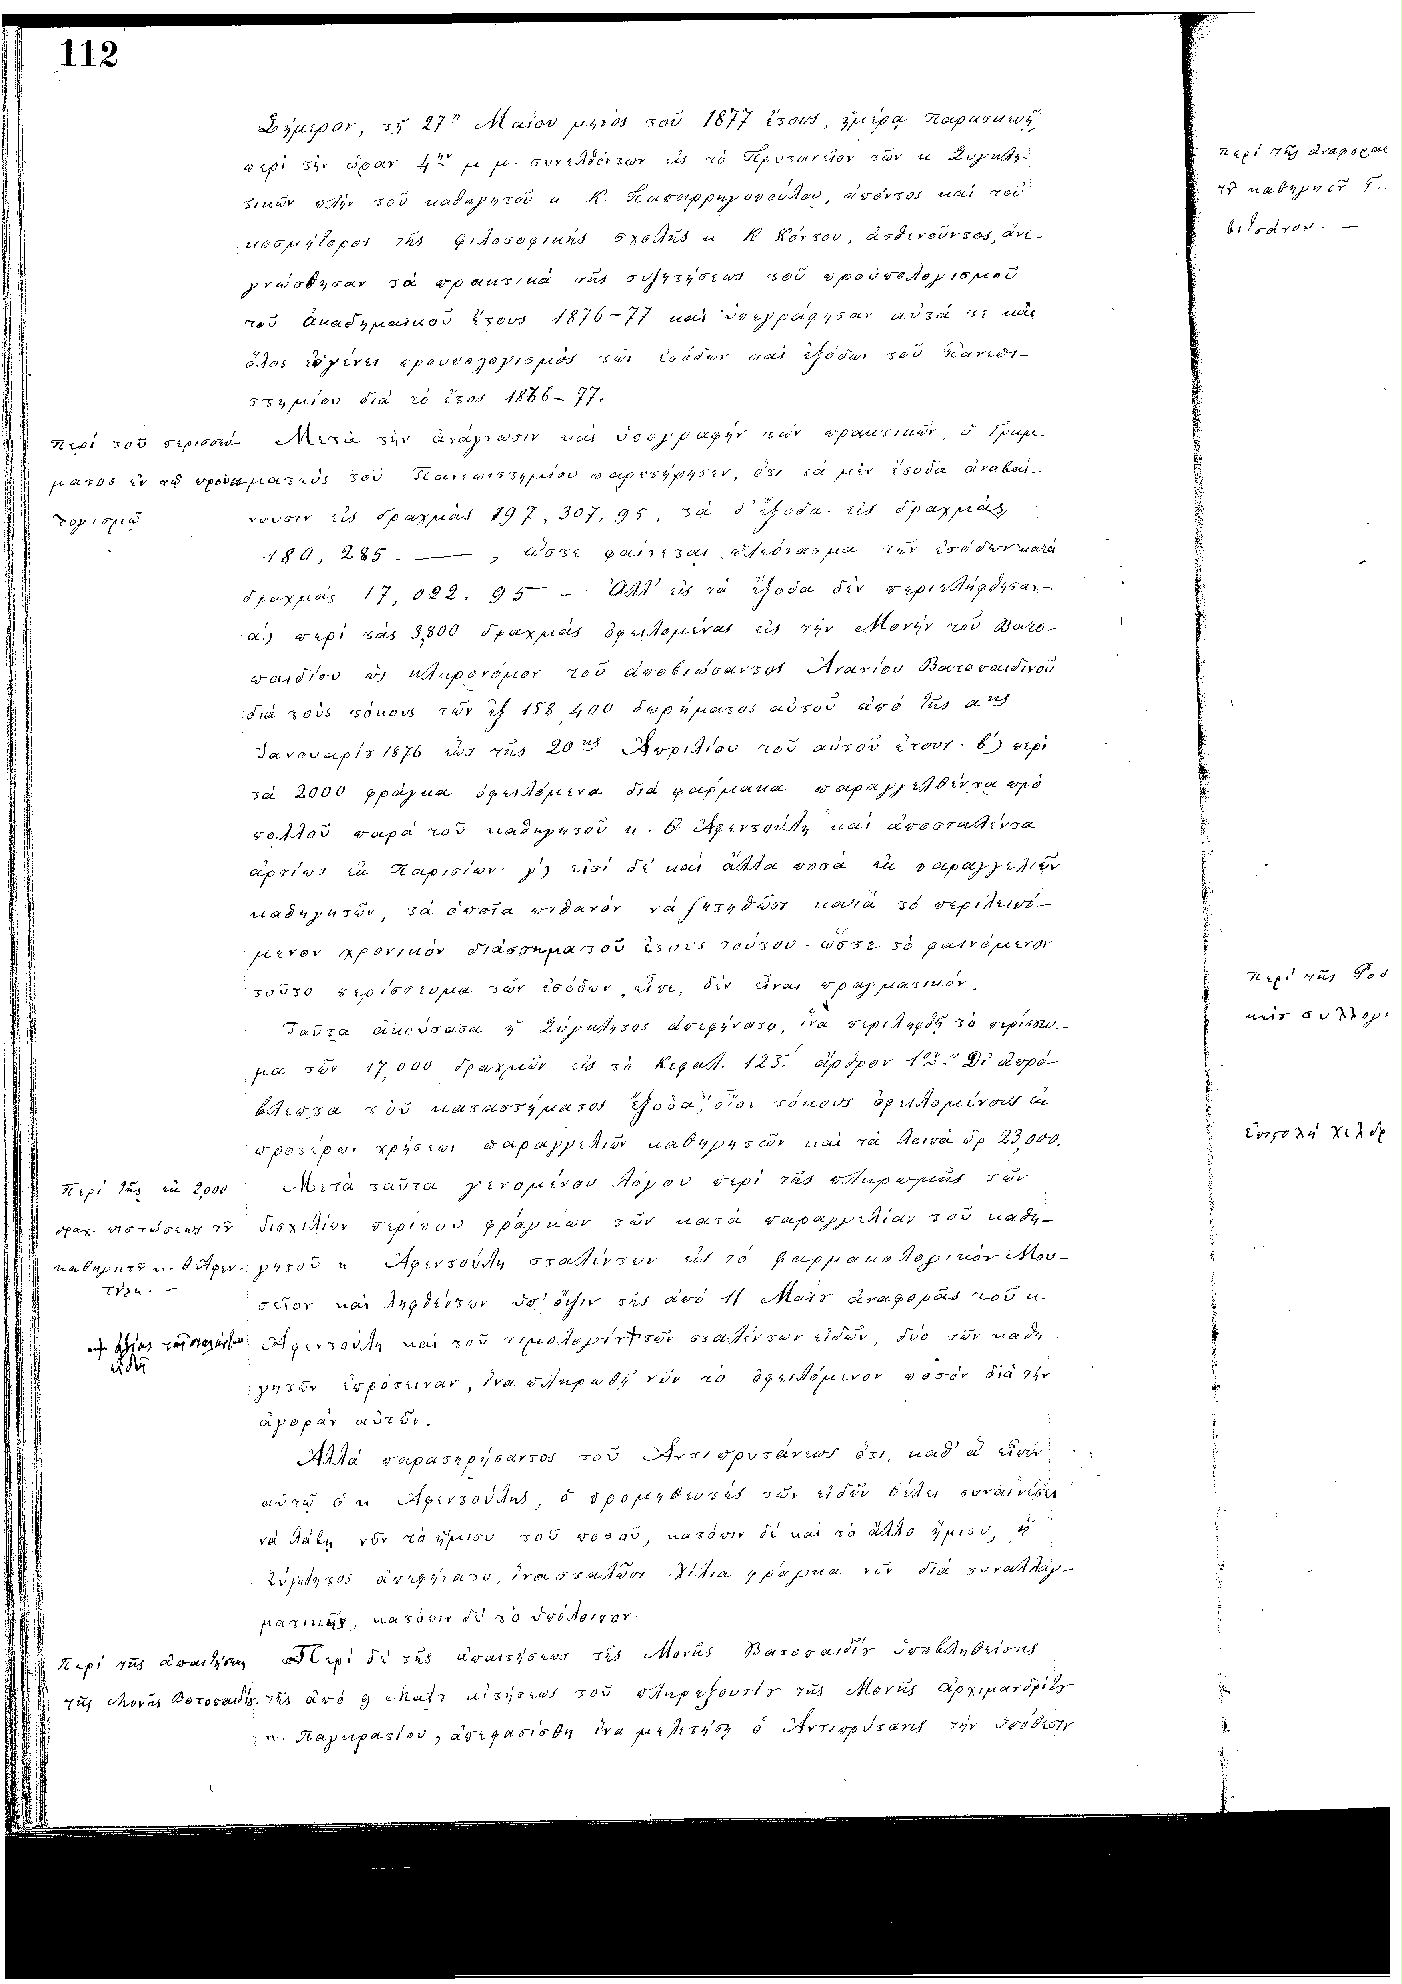 112
Σήμερον, τῇ 27ῃ Μαΐου μηνὸς τοῦ 1877 ἔτους, ἡμέρᾳ Παρασκευῇ
περὶ τὴν ὥραν 4ην μ. μ. συνελθόντων εἰς τὸ Πρυτανεῖον τῶν κ Συγκλη-
τικῶν πλὴν τοῦ καθηγητοῦ κ Κ. Παπαρρηγοπούλου, ἀπόντος καὶ τοῦ
κοσμήτορος τῆς φιλοσοφικῆς σχολῆς κ Κ Κόντου, ἀσθενοῦντος, ἀνε-
γνώσθησαν τὰ πρακτικὰ τῆς συζητήσεως τοῦ προϋπολογισμοῦ
τοῦ ἀκαδημαϊκοῦ ἔτους 1876-77 καὶ ὑπεγράφησαν αὐτά τε καὶ
ὅλος προϋπολογισμὸς τῶν ἐσόδων καὶ ἐξόδων τοῦ Πανεπι-
στημίου διὰ τὸ ἔτος 1876-77.
Περὶ τοῦ περισσεύ-
ματος ἐν τῷ προϋπο
λογισμῷ
Μετὰ τὴν ἀνάγνωσιν καὶ ὑπογραφὴν τῶν πρακτικῶν, ὁ Γραμ-
ματεὺς τοῦ Πανεπιστημίου παρετήρησεν, ὅτι τὰ μὲν ἔσοδα ἀναβαί-
νουσιν εἰς δραχμὰς 197,307,95, τὰ δ' ἔξοδα εἰς δραχμὰς
180,285. —, ὥστε φαίνεται πλεόνασμα τῶν ἐσόδων κατὰ
δραχμὰς 17,022.95 — Ἀλλ' εἰς τὰ ἔξοδα δὲν περιελήφθησαν —
α') περὶ τὰς 3,800 δραχμὰς ὀφειλομένας εἰς τὴν Μονὴν τοῦ Βατο-
παιδίου ὡς κληρονόμον τοῦ ἀποβιώσαντος Ἀνανίου Βατοπαιδινοῦ
διὰ τοὺς τόκους τῶν ἐξ 158,400 δωρήματος αὐτοῦ ἀπὸ τῆς αης
Ἰανουαρίου 1876 ἕως τῆς 20ης Ἀπριλίου τοῦ αὐτοῦ ἔτους. β') περὶ
τὰ 2000 φράγκα ὀφειλόμενα διὰ φάρμακα παραγγελθέντα πρὸ
πολλοῦ παρὰ τοῦ καθηγητοῦ κ. Θ Ἀφεντούλη καὶ ἀποσταλέντα
ἀρτίως ἐκ Παρισίων γ') εἰσὶ δὲ καὶ ἄλλα ποσὰ ἐκ παραγγελιῶν
καθηγητῶν, τὰ ὁποῖα πιθανὸν νὰ ζητηθῶσι κατὰ τὸ περιλειπό-
μενον χρονικὸν διάστημα τοῦ ἔτους τούτου. ὥστε τὸ φαινόμενον
τοῦτο περίσσευμα τῶν ἐσόδων, εἶπε, δὲν εἶναι πραγματικόν.
Ταῦτα ἀκούσασα ἡ Σύγκλητος ἀπεφήνατο, ἵνα περιληφθῇ τὸ περίσσευ-
μα τῶν 17,000 δραχμῶν εἰς τὸ κεφαλ. 123. ἄρθρον 1ον "Δι' ἀπρό-
βλεπτα τοῦ καταστήματος ἔξοδα", οἷον τόκους ὀφειλομένους ἐκ
προτέρων χρήσεων παραγγελιῶν καθηγητῶν καὶ τὰ λοιπὰ δρ 23,000.
Περὶ τῆς ἐκ 2,000
δραχ. πιστώσεως τοῦ
καθηγητοῦ κ. Θ Ἀφεν-
τούλη. —
Μετὰ ταῦτα γενομένου λόγου περὶ τῆς πληρωμῆς τῶν
δισχιλίων περίπου φράγκων τῶν κατὰ παραγγελίαν τοῦ καθη-
γητοῦ κ Ἀφεντούλη σταλέντων εἰς τὸ φαρμακολογικὸν Μου-
σεῖον καὶ ληφθέντων ὑπ' ὄψιν τῆς ἀπὸ 11 Μαΐου ἀναφορᾶς τοῦ κ.
Ἀφεντούλη καὶ τοῦ τιμολογίου + τῶν σταλέντων εἰδῶν, δύο τῶν καθη-
γητῶν ἐπρότειναν, ἵνα πληρωθῇ νῦν τὸ ὀφειλόμενον ποσὸν διὰ τὴν
ἀγορὰν αὐτῶν.
Ἀλλὰ παρατηρήσαντος τοῦ Ἀντιπρυτάνεως ὅτι, καθ' ἃ εἶπεν
αὐτῷ ὁ κ Ἀφεντούλης, ὁ προμηθευτὴς τῶν εἰδῶν θέλει συναινέσει
νὰ λάβῃ νῦν τὸ ἥμισυ τοῦ ποσοῦ, κατόπιν δὲ καὶ τὸ ἄλλο ἥμισυ, ἡ
Σύγκλητος ἀπεφήνατο, ἵνα σταλῶσι χίλια φράγκα νῦν διὰ συναλλαγ-
ματικῆς, κατόπιν δὲ τὸ ὑπόλοιπον.
Περὶ τῆς ἀπαιτήσεως
τῆς Μονῆς Βατοπαιδίου
Περὶ δὲ τῆς ἀπαιτήσεως τῆς Μονῆς Βατοπαιδίου ὑποβληθείσης
τῆς ἀπὸ 9 Μαΐου αἰτήσεως τοῦ πληρεξουσίου τῆς Μονῆς ἀρχιμανδρίτου
κ. Παγκρατίου, ἀπεφασίσθη ἵνα μελετήσῃ ὁ Ἀντιπρύτανις τὴν ὑπόθεσιν
Περὶ τῆς ἀναφορᾶς
τοῦ καθηγητοῦ
Περὶ τῆς